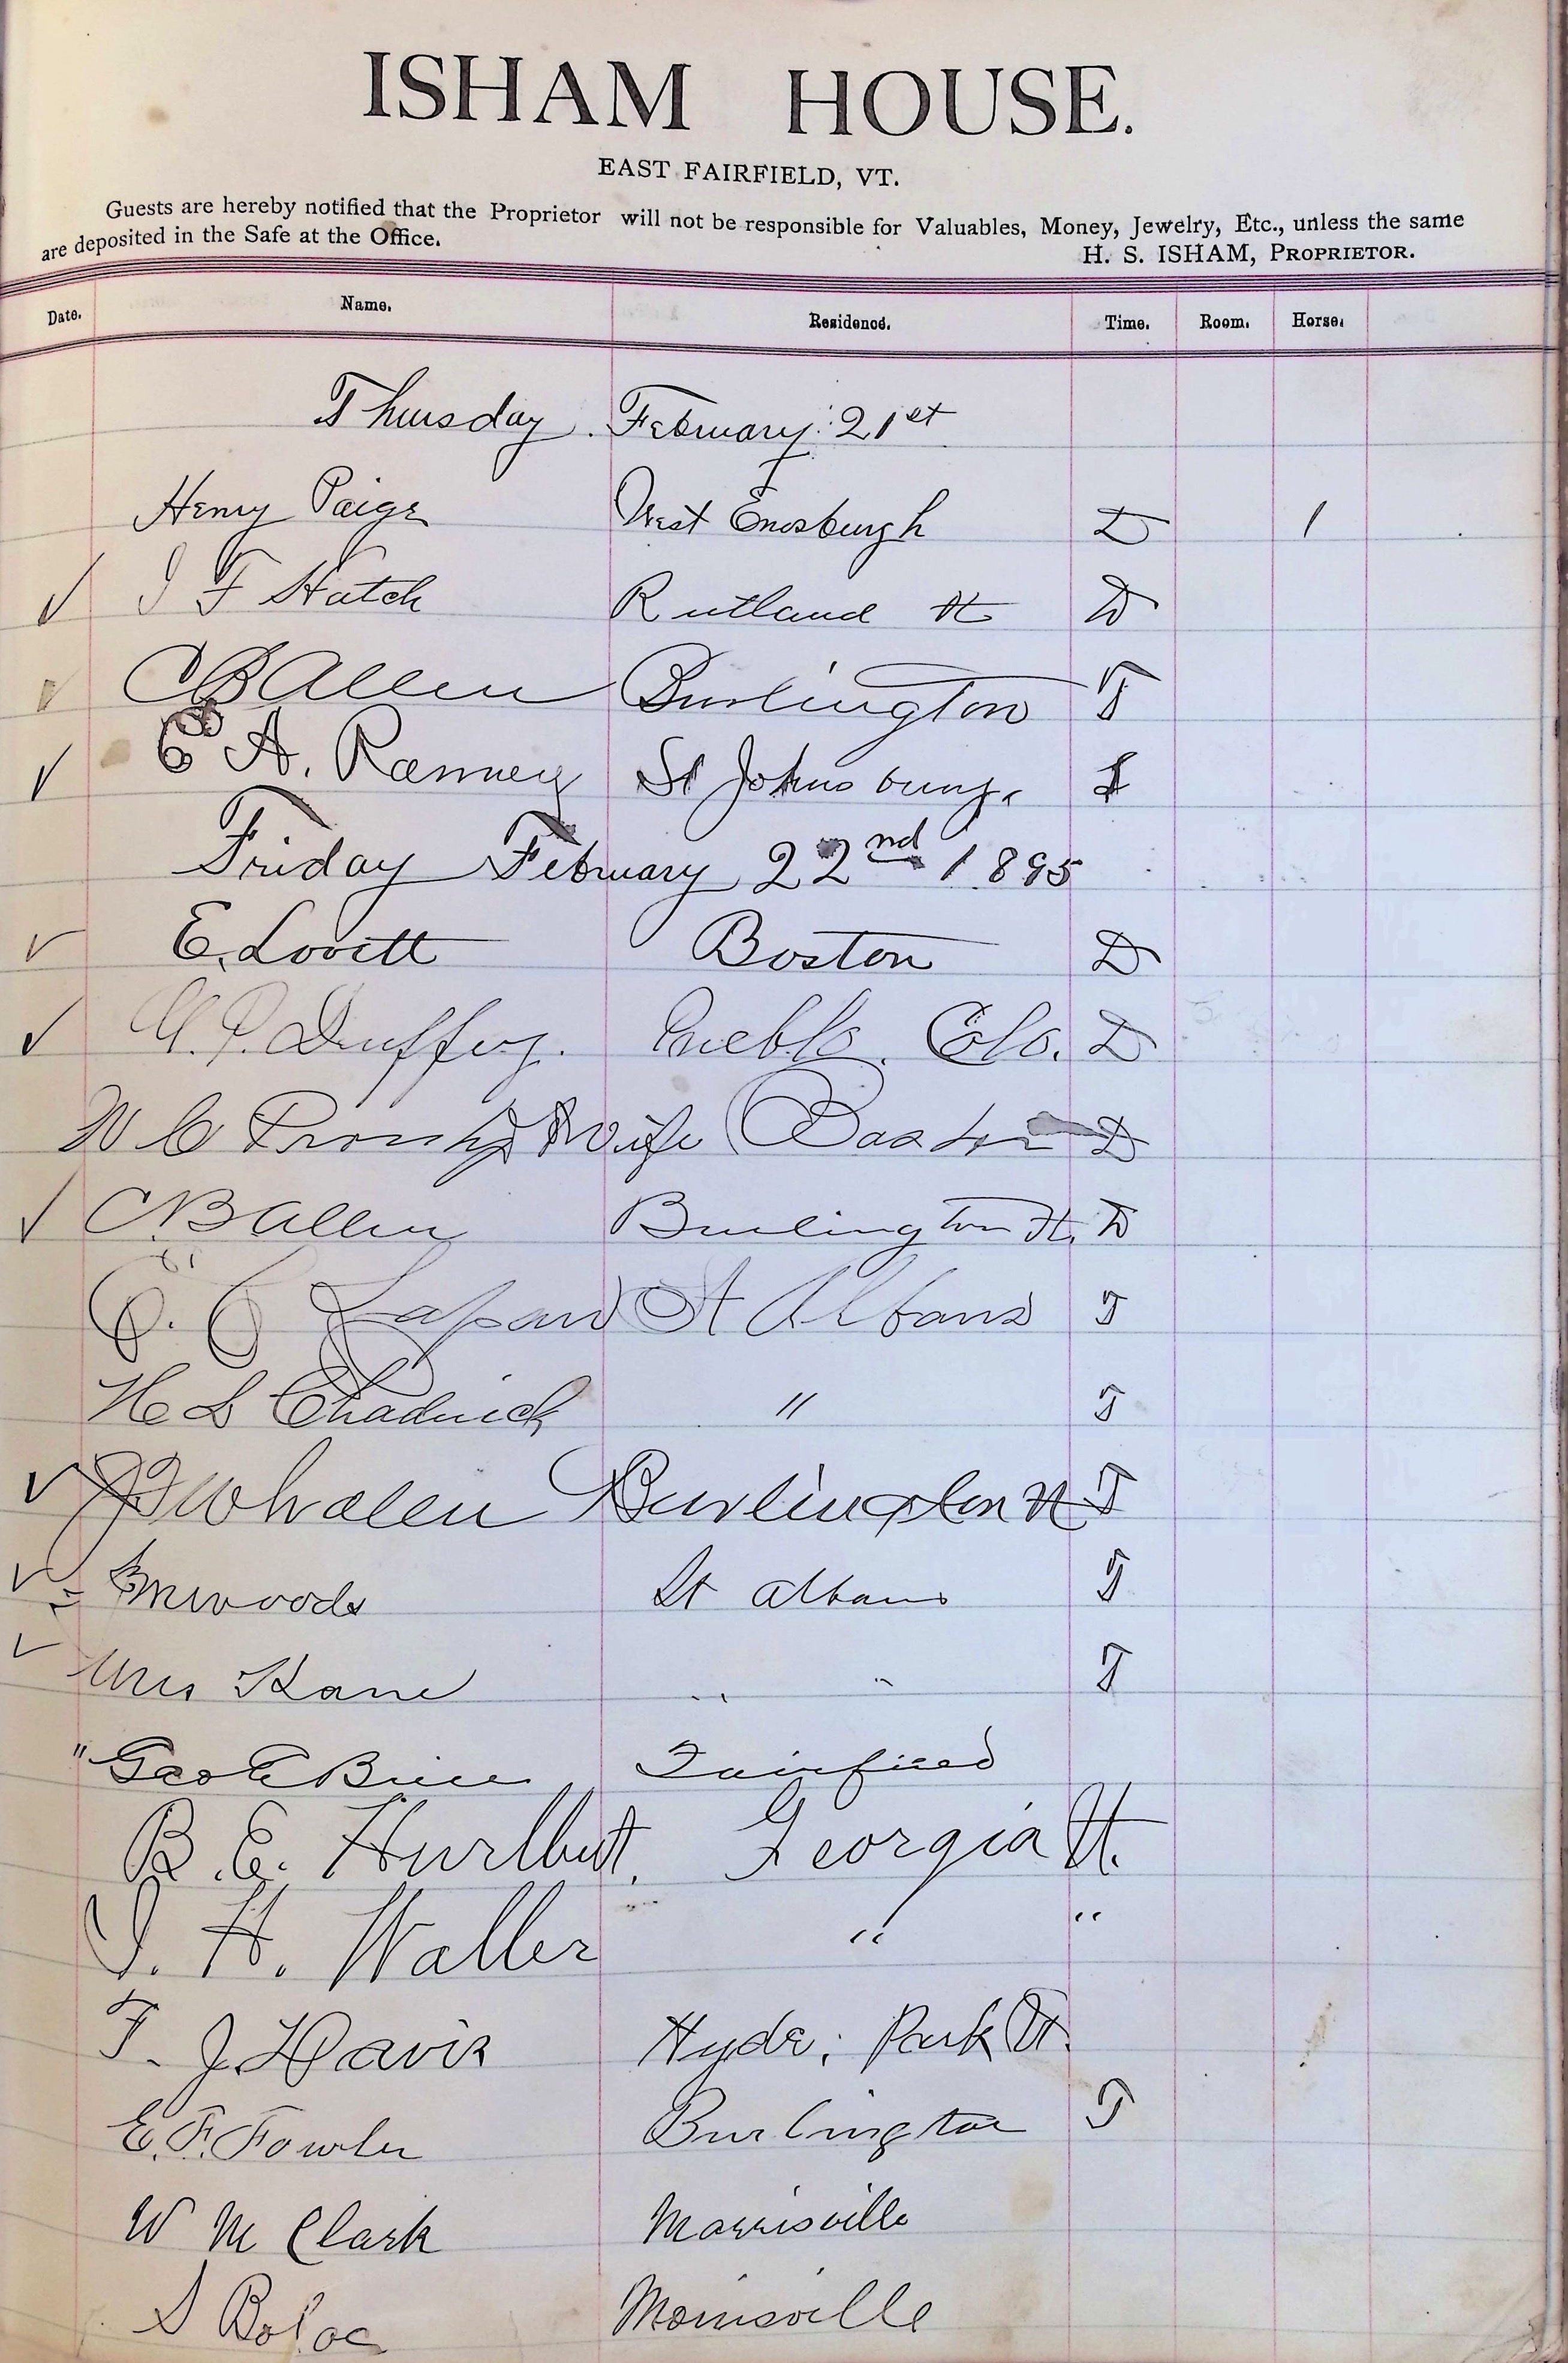 ISHAM HOUSE.
EAST FAIRFIELD, VT.
Guests are hereby notified that the Proprietor will not be responsible for Valuables, Money, Jewelry, Etc., unless the same
are deposited in the Safe at the Office.
H. S. ISHAM, PROPRIETOR.
Date. Name. Residence. Time. Room. Horse.
Thursday. February 21st
Henry Paige West Enosburgh D 1
✓ I F Hatch Rutland Vt D
✓ C B Allen Burlington T
✓ C A. Ranney St Johnsbury. L
Friday February 22nd 1895
✓ E. Lovett Boston D
✓ G. P. Duffey. Pueblo. Colo. D
W C & Wife Boston D
✓ C B Allen Burlington Vt. D
E. C. Lapan St Albans T
H L Chadwick " T
✓ J F Whalen Burlington Vt T
✓ Woods St Albans T
✓ Mrs Kane " " T
" Geo E Brice Fairfield
B. E. Hurlbut. Georgia Vt.
I. H. Waller " "
T. J. Davis Hyde Park Vt.
E. F. Fowler Burlington T
W M Clark Morrisville
S Morrisville